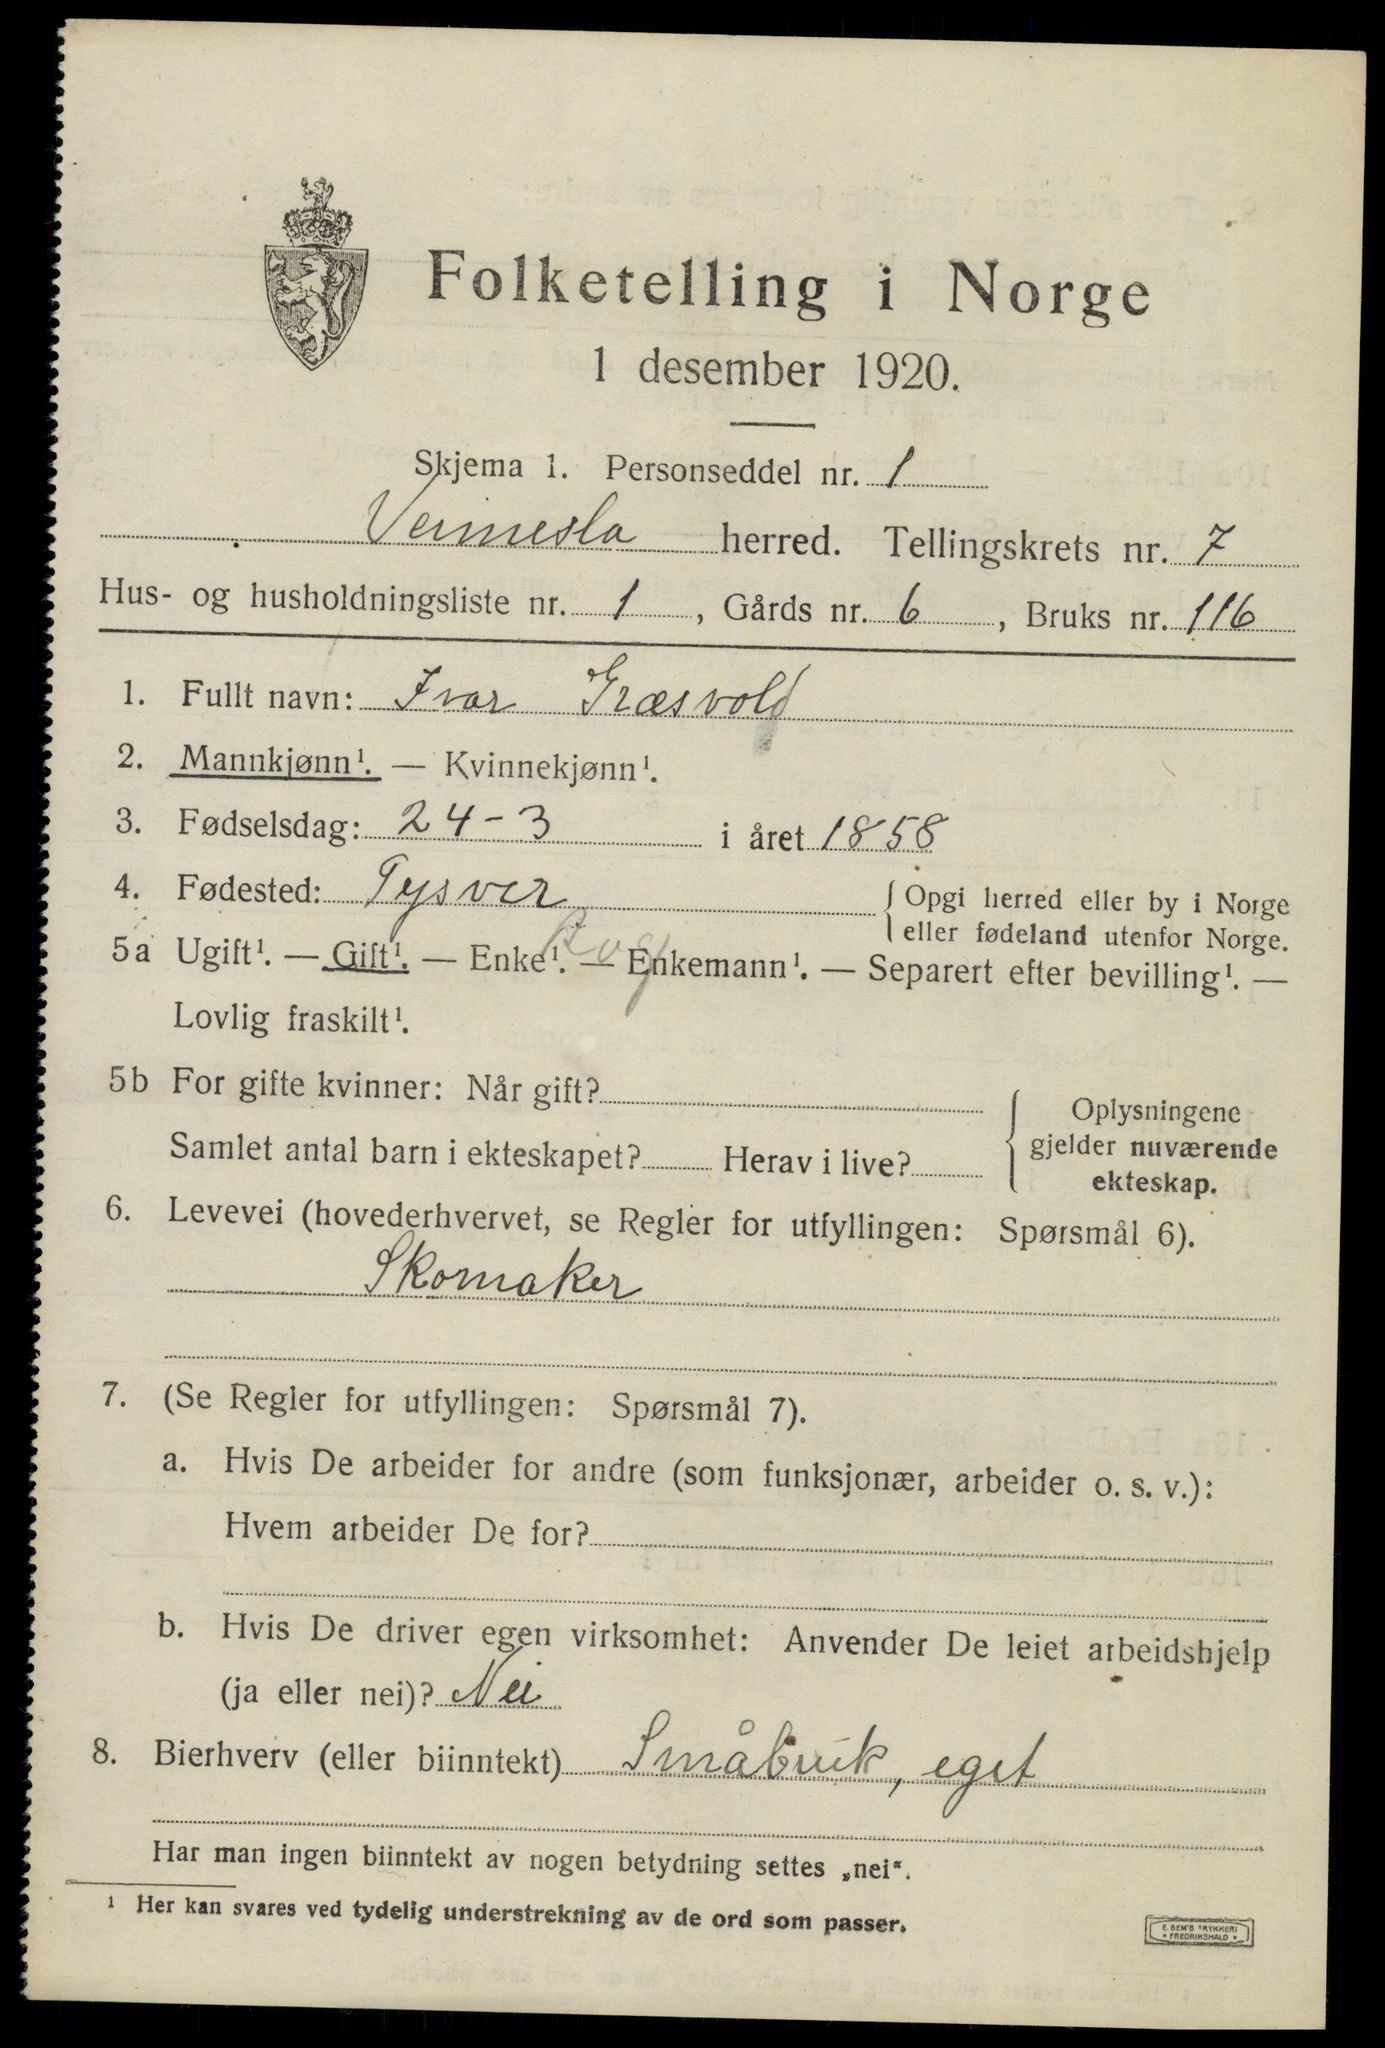 Folketelling i Norge
1 desember 1920.
Skjema 1. Personseddel nr. 1
Vennesla herred. Tellingskrets nr. 7
Hus- og husholdningsliste nr. 1, Gårds nr. 6, Bruks nr. 116
1. Fullt navn: Ivar Græsvold
2. Mannkjønn¹. — Kvinnekjønn¹.
3. Fødselsdag: 24-3 i året 1858
4. Fødested: Tysver { Opgi herred eller by i Norge
eller fødeland utenfor Norge.
Rog
5a Ugift¹. — Gift¹. — Enke¹. — Enkemann¹. — Separert efter bevilling¹. —
Lovlig fraskilt¹.
5b For gifte kvinner: Når gift?
Samlet antal barn i ekteskapet? Herav i live?
{ Oplysningene
gjelder nuværende
ekteskap.
6. Levevei (hovederhvervet, se Regler for utfyllingen: Spørsmål 6).
Skomaker
7. (Se Regler for utfyllingen: Spørsmål 7).
a. Hvis De arbeider for andre (som funksjonær, arbeider o. s. v.):
Hvem arbeider De for?
b. Hvis De driver egen virksomhet: Anvender De leiet arbeidshjelp
(ja eller nei)? Nei
8. Bierhverv (eller biinntekt) Småbruk, eget
Har man ingen biinntekt av nogen betydning settes „nei“.
¹ Her kan svares ved tydelig understrekning av de ord som passer.
E. SEM'S TRYKKERI
• FREDRIKSHALD •